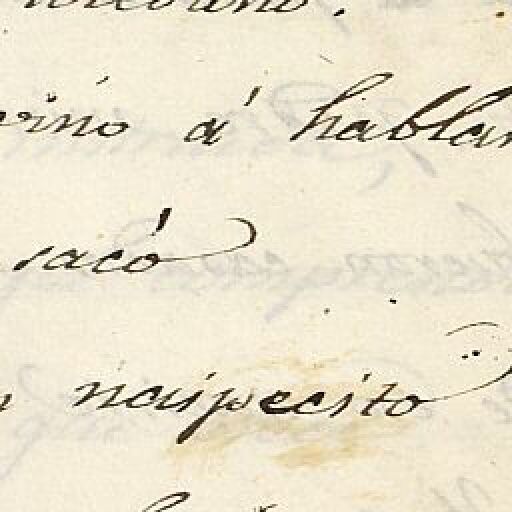 vino á hablar
sacó
naipecito